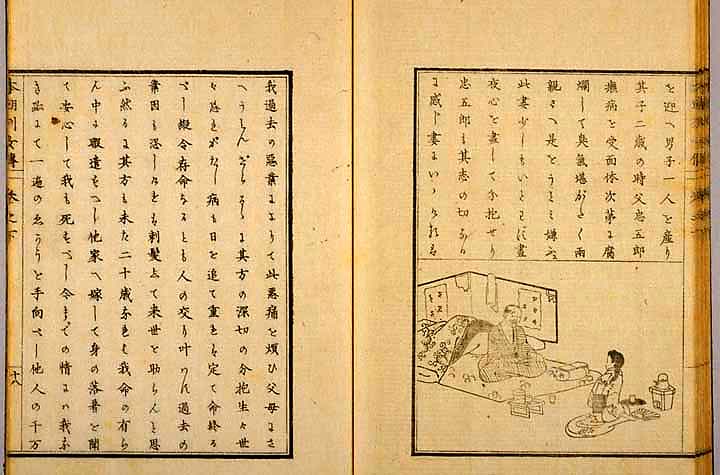 を迎へ男子一人を産り
其子二歳の時父忠五郎
癩病を受面体次第に腐
爛して臭氣堪がたく兩
親さへ是をうとミ嫌ふ
此妻少しもいとはず晝
夜心を盡して介抱せり
忠五郎も其志の切なる
に感じ妻にいつ
我過去の惡業によりて此悪痛を煩ひ父母にさ
へうとんぜらるゝに其方の深切の介抱生々世
々忘れがたし病も日を追て重れば定て命終る
べし縦令存命なるとも人の交り叶はず過去の
業因も恐しければ剃髪して来世を助らんと思
ふ然るに其方も未た二十歳なれば我命の有ら
ん中に暇遣すべし他家へ嫁して身の落着を聞
て安心して我も死すべし今までの情には我な
き跡にて一遍のゑかうを手向べし他人の千万
巻之下
十八